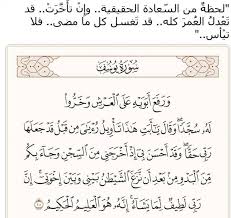 "لحظةٌ من السعادة الحقيقية.. وإنْ تأخَّرَتْ.. قد
تَعْدِلُ العُمرَ كله.. قد تَغسل كل ما مضى.. فلا
تيْأس.."
سُورَةُ يُوسُف
وَرَفَعَ أَبَوَيْهِ عَلَى ٱلْعَرْشِ وَخَرُّوا۟
لَهُۥ سُجَّدًا وَقَالَ يَٰٓأَبَتِ هَٰذَا تَأْوِيلُ رُءْيَٰىَ مِن قَبْلُ قَدْ جَعَلَهَا
رَبِّى حَقًّا وَقَدْ أَحْسَنَ بِىٓ إِذْ أَخْرَجَنِى مِنَ ٱلسِّجْنِ وَجَآءَ بِكُم
مِّنَ ٱلْبَدْوِ مِنۢ بَعْدِ أَن نَّزَغَ ٱلشَّيْطَٰنُ بَيْنِى وَبَيْنَ إِخْوَتِىٓ إِنَّ
رَبِّى لَطِيفٌ لِّمَا يَشَآءُ إِنَّهُۥ هُوَ ٱلْعَلِيمُ ٱلْحَكِيمُ